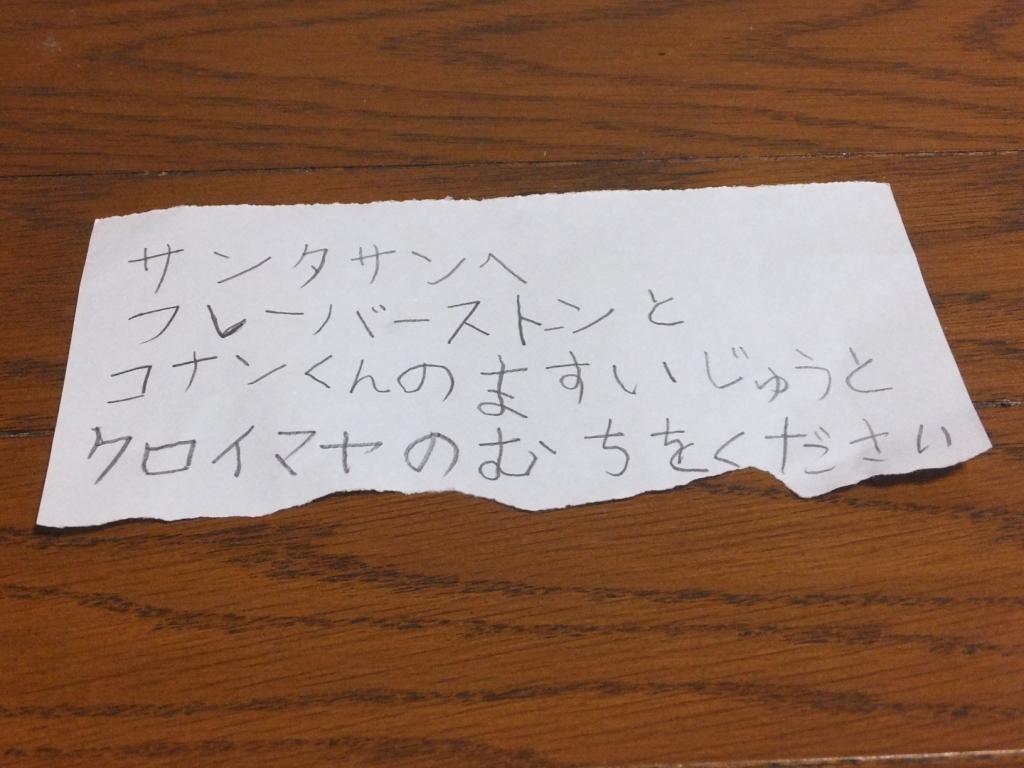 サンタサンへ
フレーバーストーンと
コナンくんのますいじゅうと
クロイマヤのむちをください